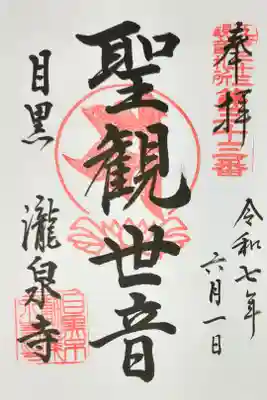 奉拝
令和七年
六月一日
聖観世音
目黒 瀧泉寺